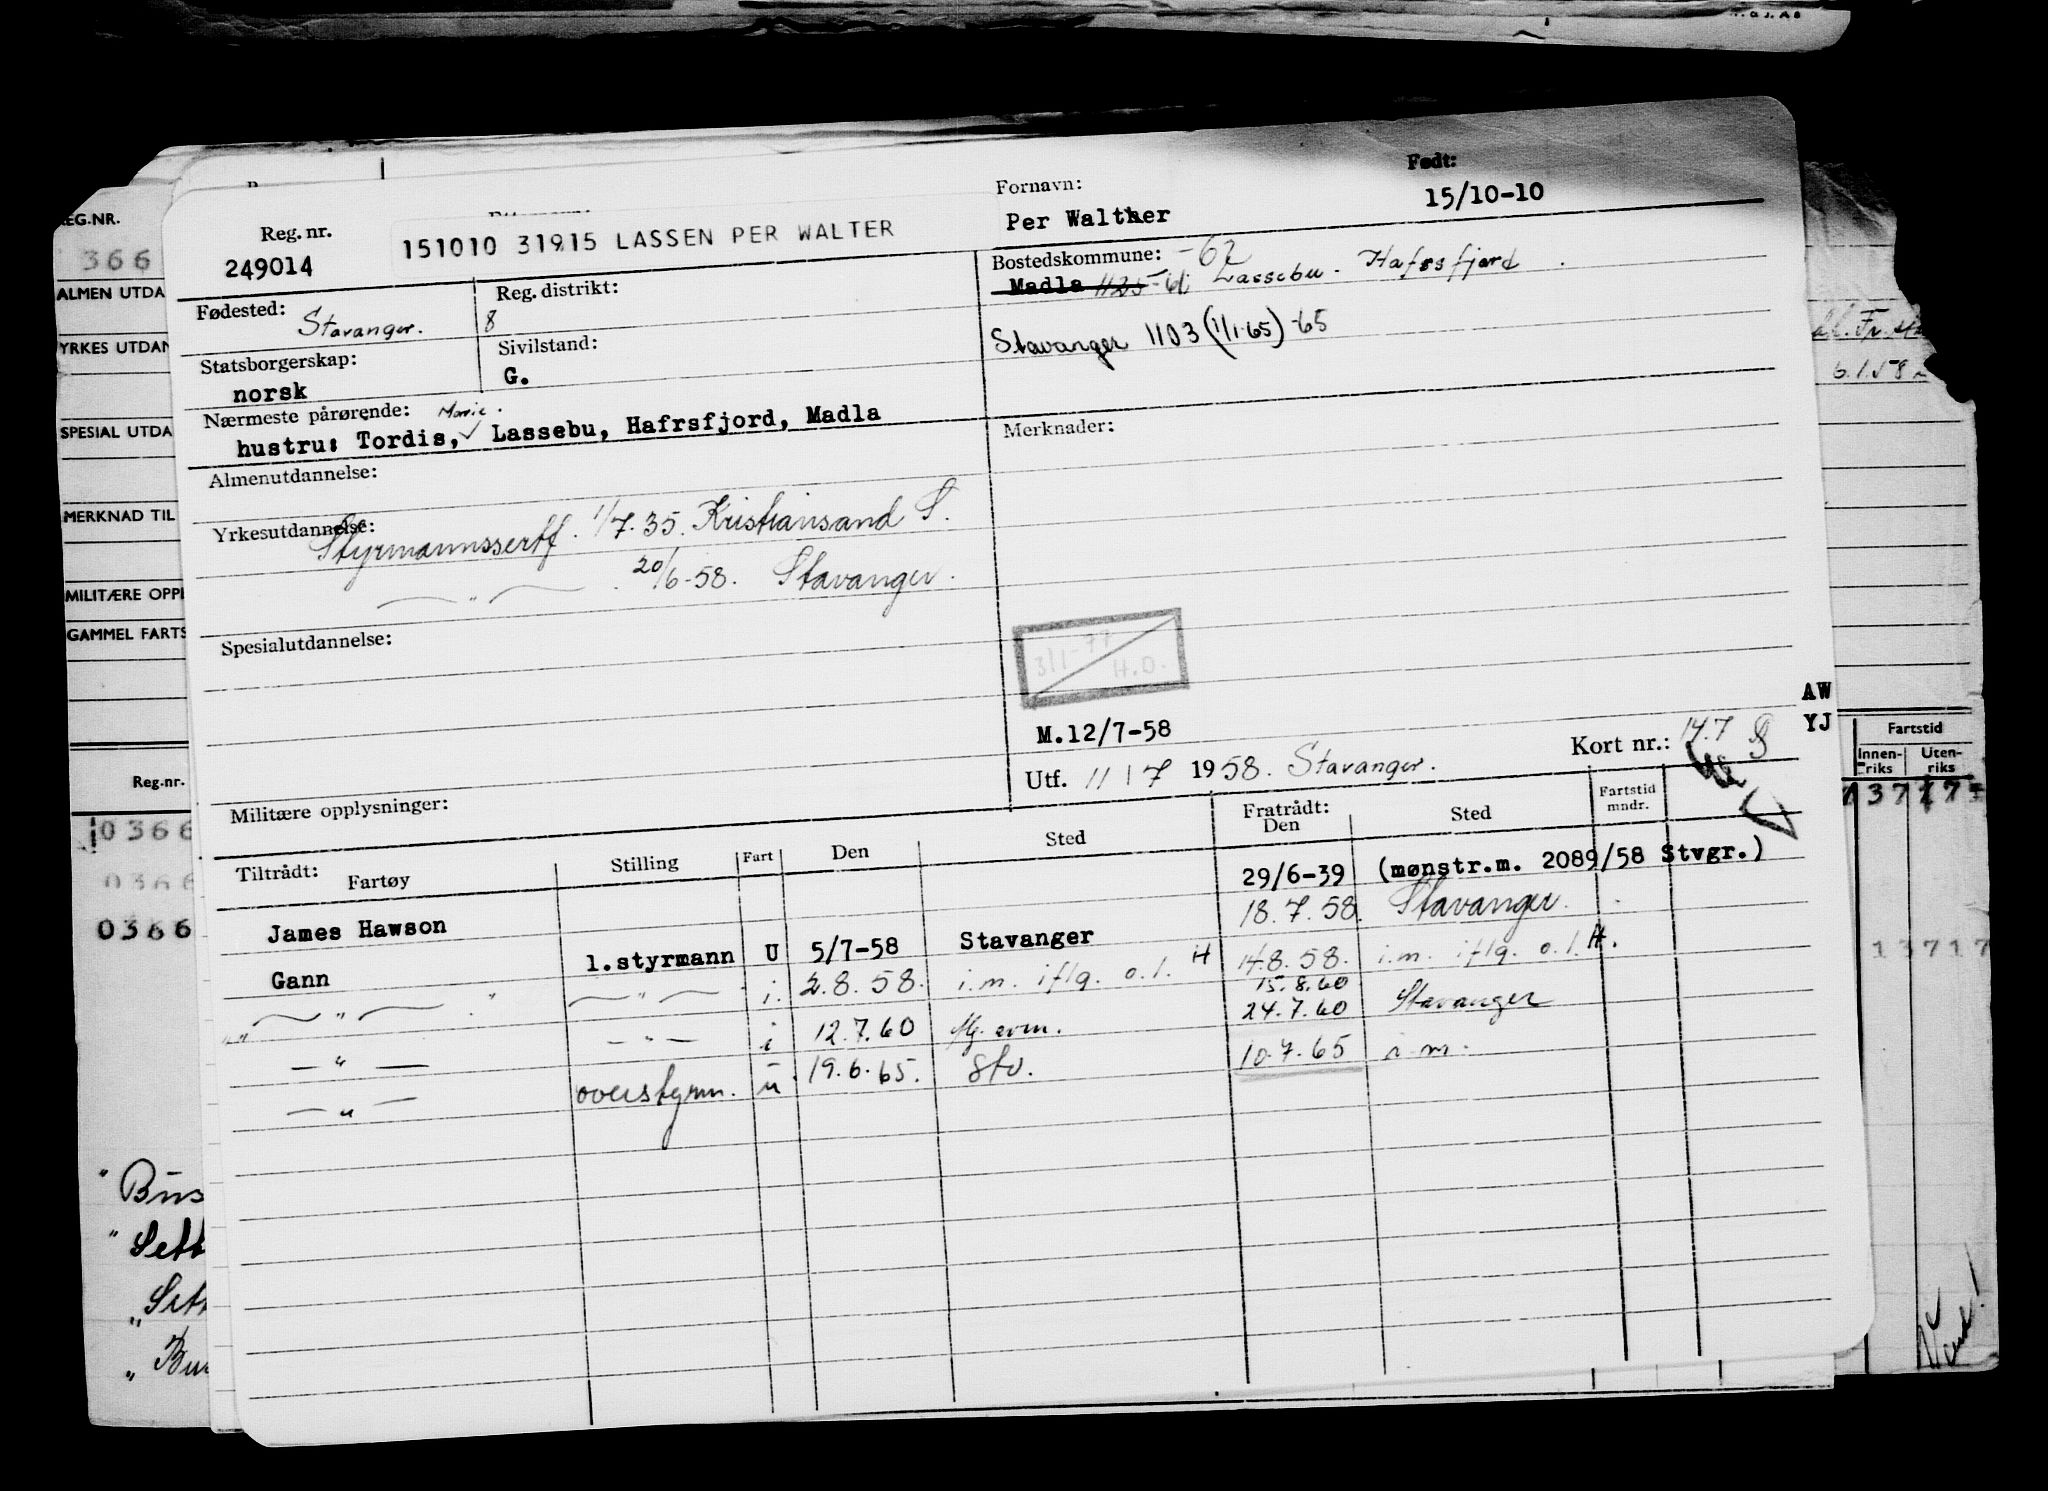 Reg. nr.
249014
151010 31915 LASSEN PER WALTER
Fornavn:
Per Walther
Født:
15/10-10
Fødested:
Stavanger.
Reg. distrikt:
8
Bostedskommune: -62
Madla 1125-61 Lassebu - Hafrsfjord
Stavanger 1103 (1/1-65) -65
Statsborgerskap:
norsk
Sivilstand:
G.
Nærmeste pårørende: Marie.
hustru: Tordis, Lassebu, Hafrsfjord, Madla
Merknader:
Almenutdannelse:
Yrkesutdannelse:
Styrmannssertf. 1/7.35. Kristiansand S.
" 20/6-58. Stavanger.
Spesialutdannelse:
3/1-77
H.O.
M.12/7-58
Utf. 11/7 1958. Stavanger.
Kort nr.: 147
AW
YJ
Militære opplysninger:
Tiltrådt:
Fartøy
Stilling
Fart
Den
Sted
Fratrådt:
Den
Sted
Fartstid
mndr.
James Hawson 29/6-39 (mønstr.m. 2089/58 Stvgr.)
Gann 1.styrmann U 5/7-58 Stavanger 18.7.58. Stavanger.
" " i. 2.8.58. i.m. iflg. o.l. H 14.8.58. i.m. iflg. o.l. H.
15.8.60
" " i 12.7.60 24.7.60 Stavanger
" overstyrm. u 19.6.65. Stv. 10.7.65 i.m.
REG.NR.
366
ALMEN UTDA
YRKES UTDAN
SPESIAL UTDA
MERKNAD TIL
MILITÆRE OPPL
GAMMEL FARTS
Reg.-nr.
0366
0366
0366
" Bus
" Sett
" Sett
" Bur
6.1.58
Fartstid
Innen-
riks
Uten-
riks
13717